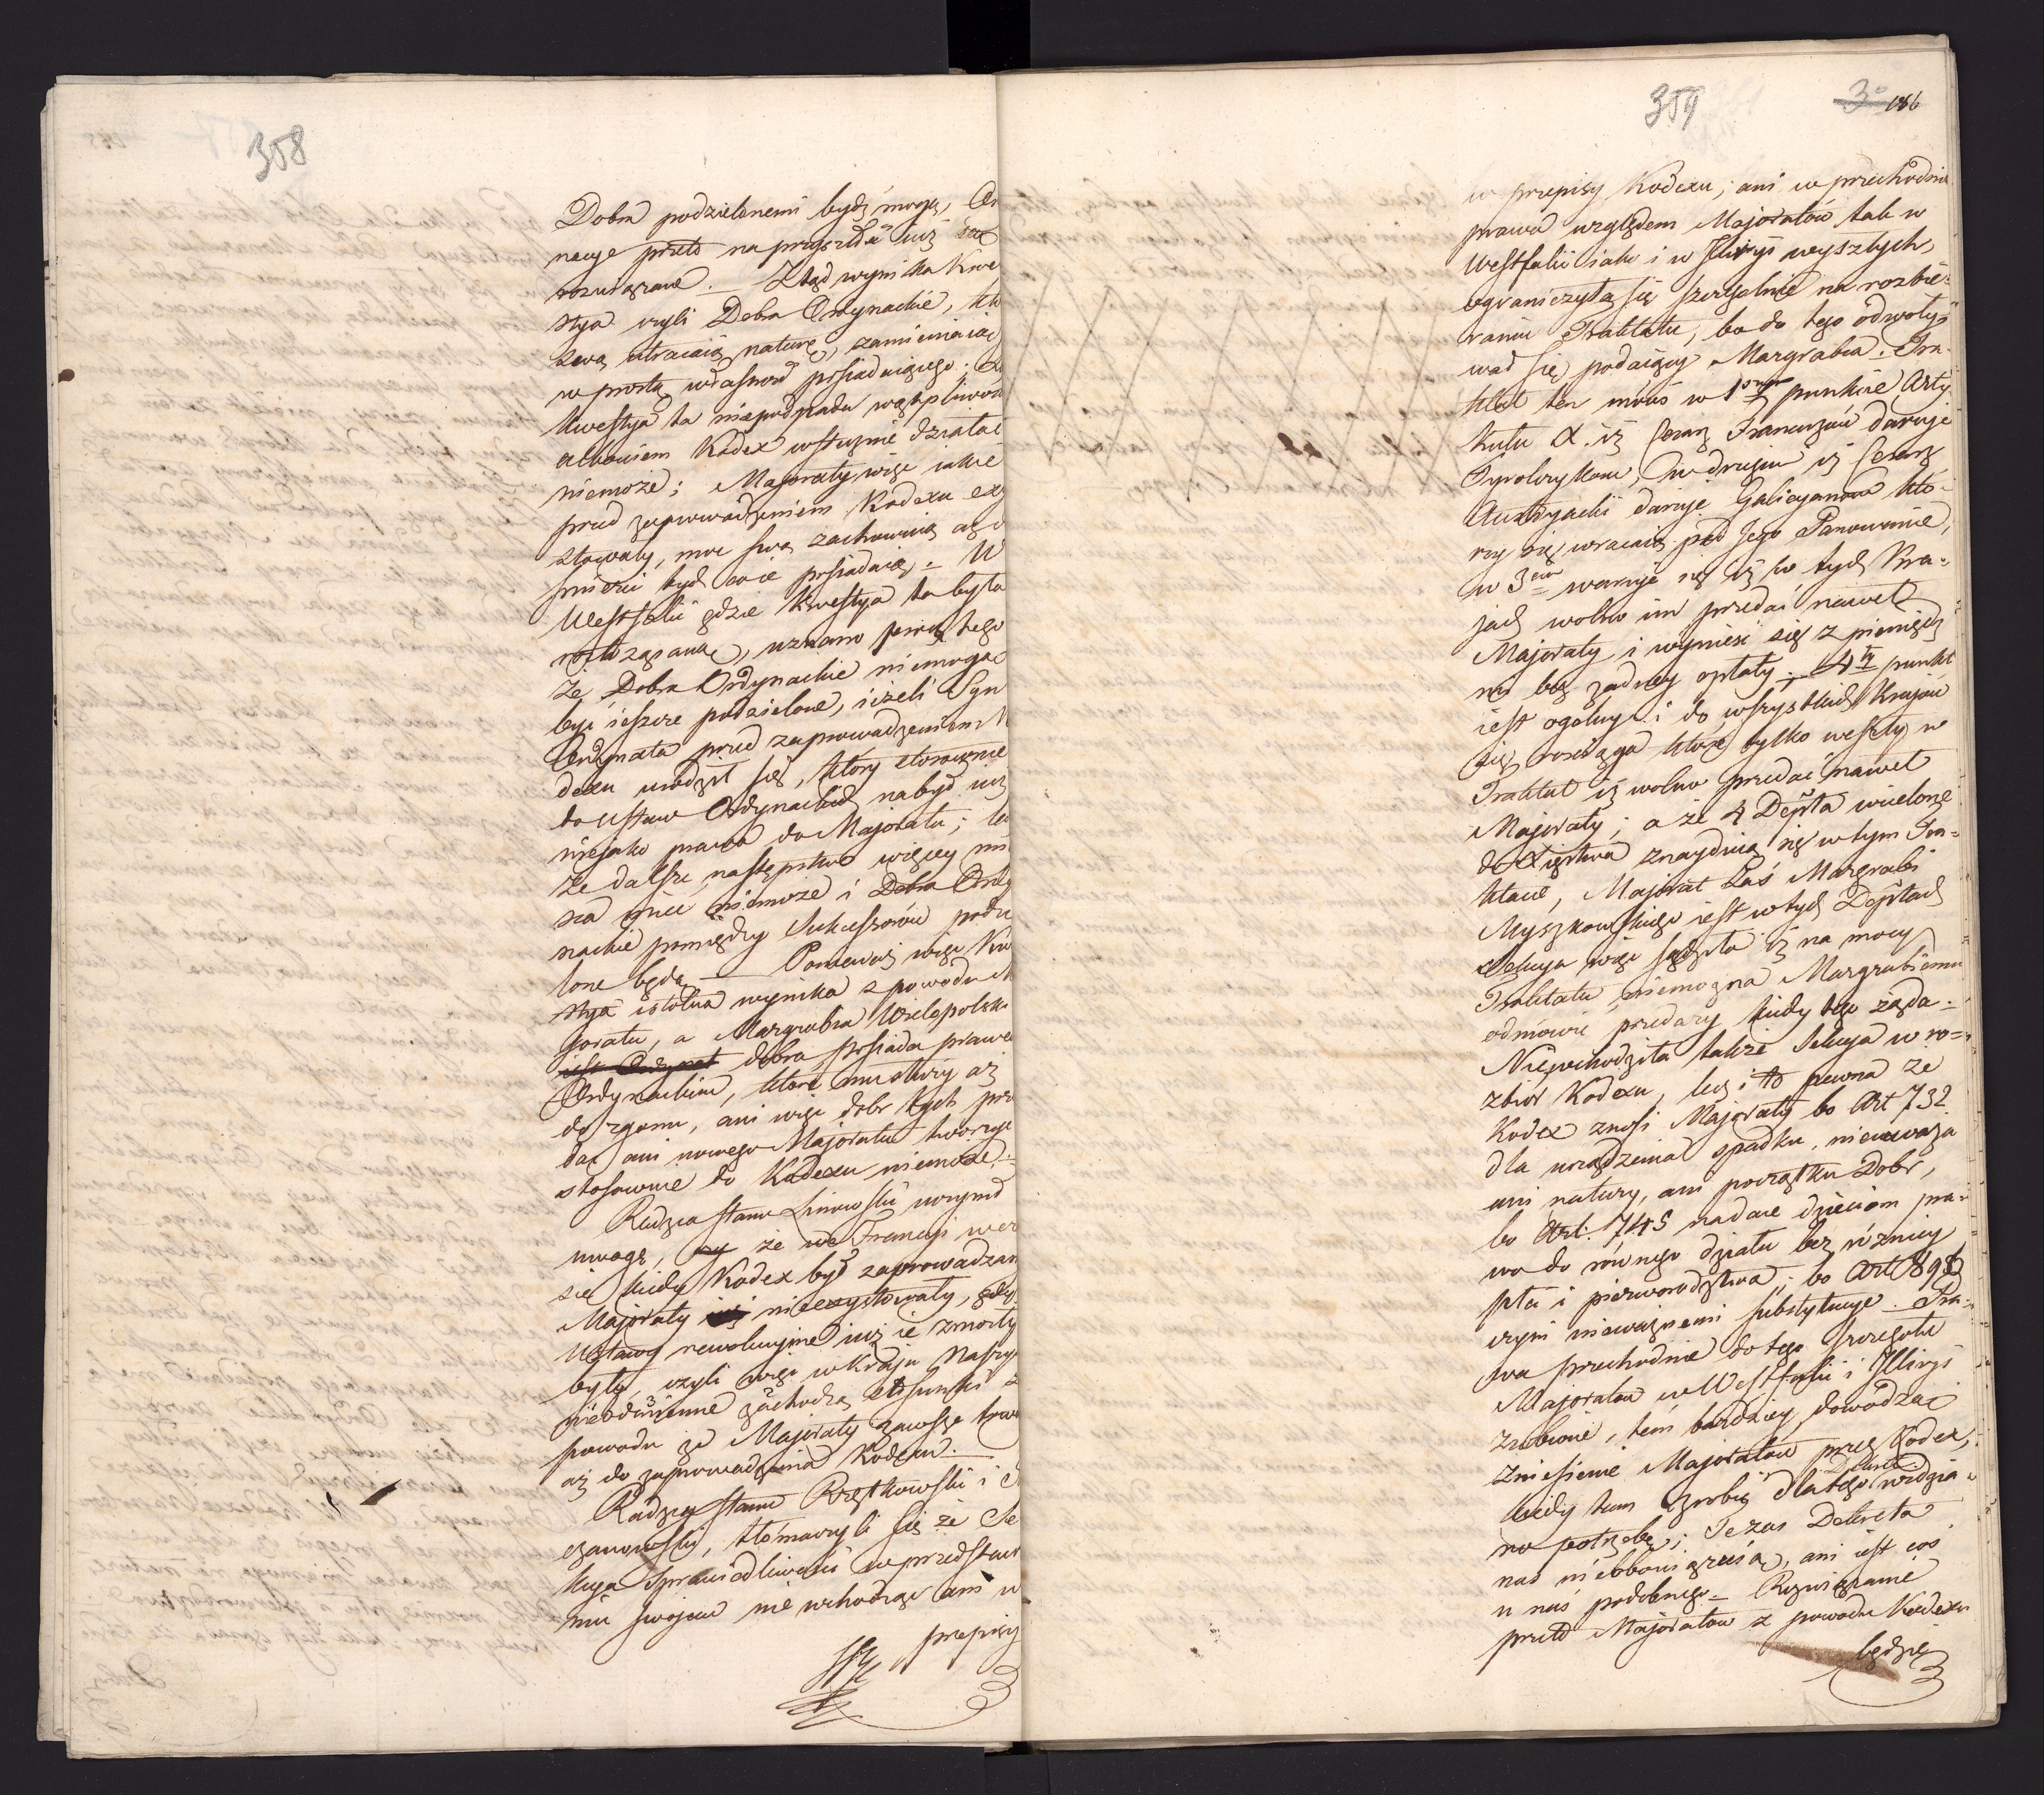 358
Dobra podzielonemi bydź mogą, Or
nacye przeto na przyszłość już są
rozwiązane. — Ztąd wynika Kwe
stya czyli Dobra Ordynackie, któ
swą utracaią naturę, zamieniaiąc
w prostą własność posiadaiącego;
Kwestya ta niepodpada wątpliwoś
albowiem Kodex wstecznie działać
niemoże; Majoraty więc iakie
przed zaprowadzeniem Kodexu exy
stowały, moc swą zachowuią aż d
śmierci tych co ie posiadaią. — W
Westfalii gdzie kwestya ta była
roztrząsaną, uznano prócz tego
że Dobra Ordynackie niemogą
być ieszcze podzielone, ieżeli Syn
Ordynata przed zaprowadzeniem K
dexu urodził się, który stosownie
do ustaw Ordynackich nabył iuż
nieiako prawa do Majoratu; le
że dalsze następstwo więcey mi
sca mieć niemoże i Dobra Ordy
nackie pomiędzy Sukcessorów podzie
lone będą — Ponieważ więc Kwe
stya istotna wynika z powodu M
joratu, a Margrabia Wielopolski
iest Ordynat dobra posiada prawe
Ordynackiem, które mu służy aż
do zgonu, ani więc dobr tych prze
dać ani nowego Majoratu tworzyć
stosownie do Kodexu niemoże. —
Radzca stanu Linowski uczynił
uwagę, że we Francji w cza
sie kiedy Kodex był zaprowadzan
Majoraty iuż nieexystowały, gdy
Ustawy rewolucyjne iuż ie zniosły
były, czyli więc w Kraju Naszym
nieodmienne zachodzą stosunki z
powodu że Majoraty zawsze trwa
aż do zaprowadzenia Kodexu. —
Radzcy stanu Rzętkowski i
czanowski, tłómaczyli się że Se
kcya Sprawiedliwości w przedstawie
niu swojem nie wchodząc ani w
przepisy
359
3° 186
w przepisy Kodexu, ani w przechodnie
prawa względem Majoratów tak w
Westfalii iako i w Illiryi wyszłych,
ograniczyła się szczególnie na rozbie-
raniu Traktatu, bo do tego odwoły-
wał się podaiący Margrabia. Tra-
ktat ten mówi w 1szym punkcie Arty-
kułu X. iż Cesarz Francuzów daruje
Tyrolczykom, w drugim iż Cesarz
Austryacki daruje Galicyanom któ-
rzy się wracaią pod Jego Panowanie,
w 3cim waruje się iż w tych Kra-
jach wolno im przedać nawet
Majoraty i wynieść się z pieniędz
mi bez żadney opłaty. — 4ty punkt
iest ogólny i do wszystkich Krajów
się rosciąga które tylko weszły w
Traktat iż wolno przedać nawet
Majoraty; a że 4 Depta wcielone
do Xięstwa znayduią się w tym Tra-
ktacie, Majorat zaś Margrabi
Myszkowskiego iest w tych Deptach
Sekcya więc sądziła iż na mocy
Traktatu niemożna Margrabiemu
odmówić przedaży kiedy tego żąda. —
Niewchodziła także Sekcya w ro-
zbiór Kodexu, lecz i to pewna że
Kodex znosi Majoraty bo Art 732
dla urządzenia spadku, nieuważa
ani natury, ani początku Dobr,
bo Art. 745 nadaie dzieciom pra-
wo do równego działu bez różnicy
płci i pierworodztwa, bo Art 896
czyni nieważnemi substytucye. Pra-
wa przechodnie do tego szczegółu
Majoratów w Westfalii i Illiryi
zrobione, tém bardziey dowodzą
zniesienie Majoratów przez Kodex,
kiedy tam zrobić dla tego widzia-
no potrzebę; Te zaś Dekreta
nas nieobowiązuią, ani iest coś
u nas podobnego. — Rozwiązanie
przeto Majoratów z powodu Kodexu
będzie